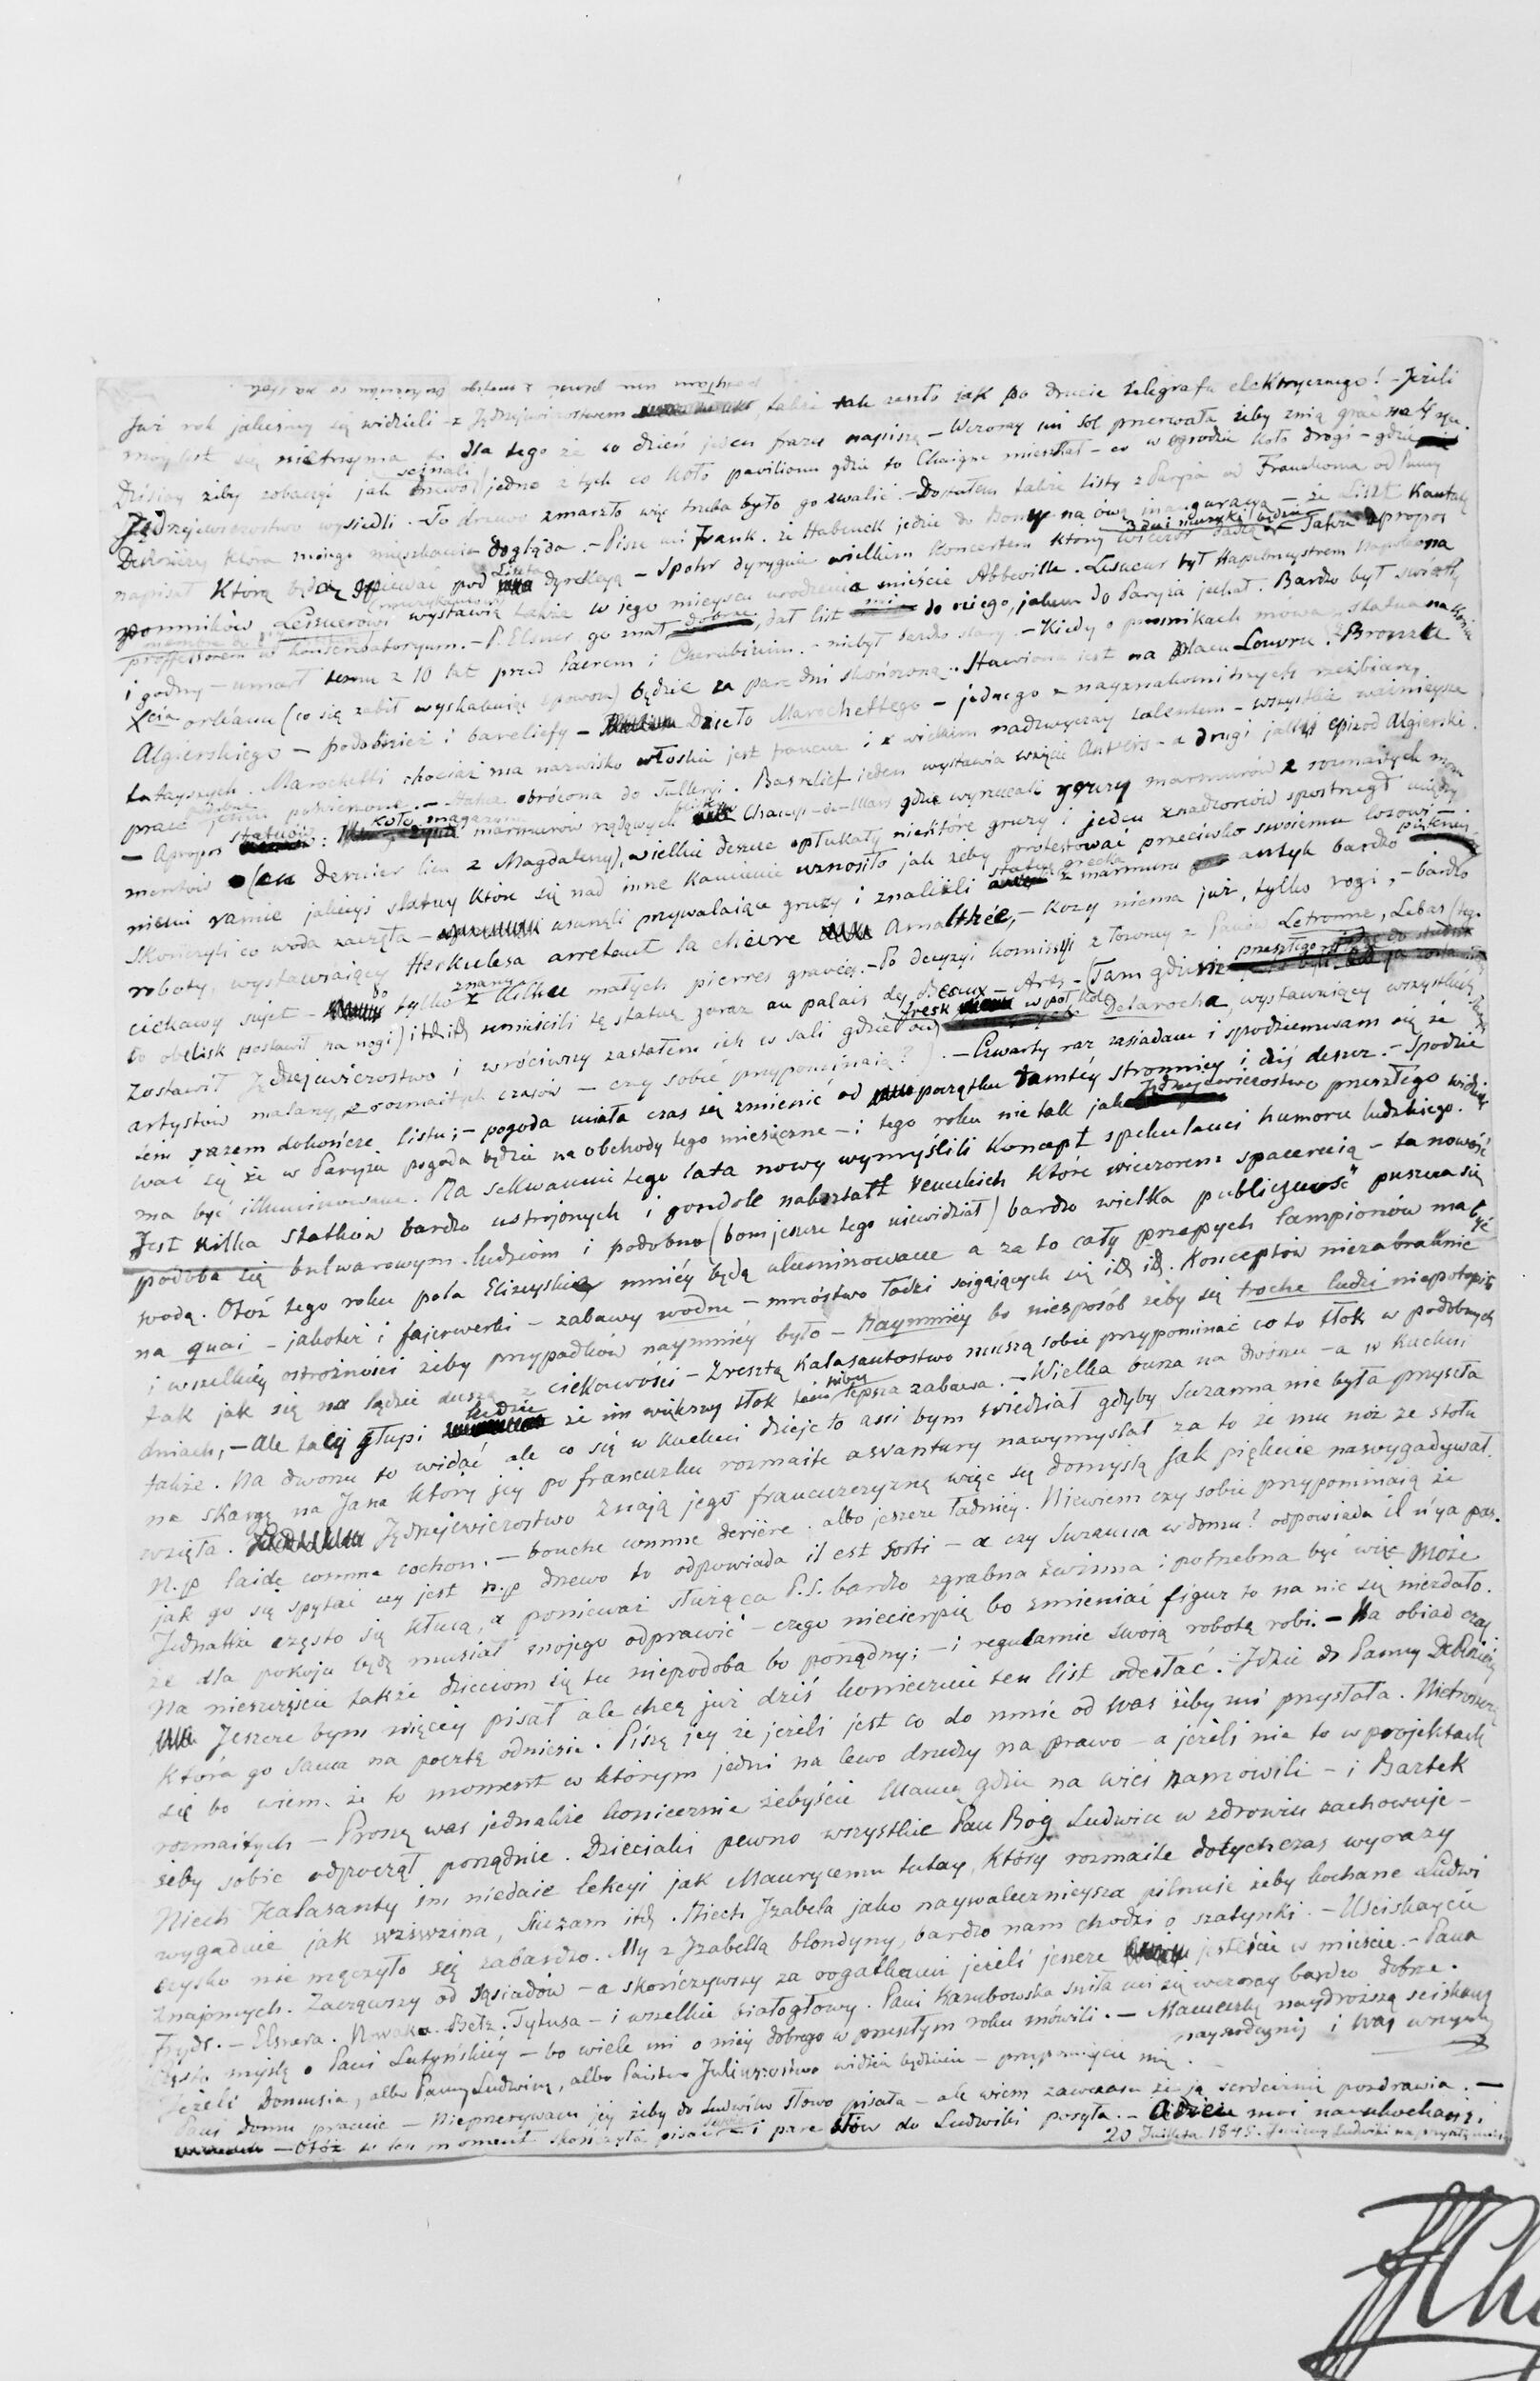 Już rok jakeśmy się widzieli z Jędrzejewiczostwem także tak zeszło jak po drucie telegrafu elektrycznego! - Jeżeli
mój list się nietrzyma to dla tego że co dzień jeden frazes napiszę - Wczoray mi Sol przerwała żeby znią grać na 4 ręce.
Dzisiay żeby zobaczyć jak ścinali drzewo jedno z tych co koło pavilionu gdzie to Chaigne mieszkał - co w ogrodzie koło drogi - gdzie
Jędrzejewiczostwo wysiedli. - To drzewo zmarzło więc trzeba było go zwalić. - Dostałem także listy z Paryża od Franchoma od Panny
De Rozières która mojego mięszkania dogląda. - Pisze mi Frank. że Habeneck jedzie do Bonn na ową inauguracyą - że Liszt Kantatę
napisał którą będą śpiewać pod Liszta dyrekcyą - Spohr dyryguie wielkiem koncertem który wieczór dadzą - 3 dni muzyki będzie - Także apropos
pomników Lesueurowi wystawią także w jego mieyscu urodzenia mieście Abbeville. Lesueur był Kapelmeystrem Napoleona
professorem w konserwatoryum. - P. Elsner go znał dobrze, dał list mi do niego, jakem do Paryża jechał. Bardzo był światły
i godny - umarł temu z 10 lat przed Paerem i Cherubinim. - niebył bardzo stary. - Kiedy o pomnikach mówa - statua na koniu
Xcia orléanu (co się zabił wyskakuiąc z powozu) będzie za parę dni skończona. Stawiona jest na placu Louvru. Z Bronzu
Algierskiego - podobnież i bareliefy - Dzieło Marochettego - jednego z nayznakomitszych rzeźbiarzy
tutayszych. Marochetti chociaż ma nazwisko włoskie jest francuz i z wielkim nadzwyczay talentem - wszystkie ważnieysze
prace jemu powierzone. - statua obrócona do Tulleryi. Basrelief jeden wystawia wzięcie Anvers - a drugi jakiś epizod Algierski.
- Apropos statuów: koło magazynu marmurów rządowych blisko Champ-de-Mars gdzie wyrzucali gruzy marmurów z rozmaitych monu
mentów (en dernier lieu z Magdaleny), wielkie deszcze opłukały niektóre gruzy i jeden z nadzorców spostrzegł między
niemi ramie jakieyś statuy które się nad inne kamienie wznosiło jak żeby protestować przeciwko swoiemu losowi
Skończyli co woda zaczęła - usunęli przywalaiące gruzy i znaleźli statuę grecką z marmuru antyk bardzo pięknéj
roboty, wystawiaiący Herkulesa arretant la chèvre Amalthée, - kozy niema już, tylko rogi, - bardzo
ciekawy sujet - bo tylko znany z kilku małych pierres gravées. - Po decyzyi komisyi złożoney z Panów Letronne, Lebas (tego
co obelisk postawił na nogi) itd itd umieścili tę statuę zaraz au palais des Beaux-Arts - (Tam gdzie
zostawił Jędrzejewiczostwo i wróciwszy zastałem ich w sali gdzie ów fresk w poł koło Delarocha wystawiaiący wszystkich
artystów malarzy z rozmaitych czasów - czy sobie przypominaią?). - Czwarty raz zasiadam i spodziewam się że
tem razem dokończę listu; - pogoda miała czas się zmienić od początku tamtéy stronnicy i dziś deszcz. - Spodzie
wać się że w Paryżu pogoda będzie na obchody tego miesięczne - i tego roku nie tak jak Jędrzejewiczostwo przeszłego widzieli
ma być illuminowane. Na Sekwannie tego lata nowy wymyślili koncept spekulanci humoru ludzkiego.
Jest kilka statków bardzo ustrojonych i gondole nakształt weneckich które wieczorem spaceruią - ta nowość
podoba się bulwarowym ludziom i podobno (bom jeszcze tego niewidział) bardzo wielka publiczność puszcza się
wodą. Otóż tego roku pola Elizeyskie mniéy będą illuminowane a za to cały przepych lampionów ma być
na quai - jakoteż i fajerwerki - zabawy wodne - mnóstwo łodzi ścigaiących się itd itd. Konceptów niezabraknie
i wszelkiéy ostrożności żeby przypadków naymniéy było - Naymniéy bo niesposób żeby się trochę ludzi niepotopiło
tak jak się na lądzie duszą z ciekawości - Zresztą Kalasantostwo muszą sobie przypominać co to tłok w podobnych
dniach, - Ale tacy głupi ludzie że im większy tłok tem niby lepsza zabawa. - Wielka burza na dworze - a w kuchni
także. Na dworze to widać ale co się w kuchni dzieje to ani bym wiedział gdyby Suzanna nie była przyszła
na skargę na Jana który jéy po francuzku rozmaite awantury nawymyślał za to że mu nóż ze stołu
wzięła. Jędrzejewiczostwo znają jego francuzczyznę więc się domyślą jak pięknie nawygadywał.
N.p laide comme cochon. - bouche comme derière. albo jeszcze ładniéy. Niewiem czy sobie przypominaią że
jak go się spytać czy jest n.p drzewo to odpowiada il est sorti - a czy Suzanna w domu? odpowiada il n'ya pas.
Jednakże często się kłucą, a ponieważ służąca P.S. bardzo zgrabna zwinna i potrzebna być więc może
że dla pokoju będę musiał mojego odprawić - czego niecierpię bo zmieniać figur to na nic się niezdało.
Na nieszczęście także dzieciom się tu niepodoba bo porządny; - i regularnie swoją robotę robi. - Na obiad czas
Jeszcze bym więcey pisał ale chcę już dziś koniecznie ten list odesłać. Idzie do Panny De Rozières
która go sama na pocztę odniesie. Piszę jéy że jeżeli jest co do mnie od Was żeby mi przysłała. Nietroszczę
się bo wiem że to moment w którym jedni na lewo drudzy na prawo - a jeżeli nie to w projektach
rozmaitych - Proszę was jednakże koniecznie żebyście Mamę gdzie na wieś namówili - i Bartek
żeby sobie odpoczął porządnie. Dzieciaki pewno wszystkie Pan Bóg Ludwice w zdrowiu zachowuje -
Niech Kalasanty im niedaie lekcyi jak Maurycemu tutay, który rozmaite dotychczas wyrazy
wygaduie jak wziwzina, itd. Niech Izabela jako naywalecznieysza pilnuje żeby kochane Ludwi
czysko nie męczyło się zabardzo. My z Izabellą blondyny, bardzo nam chodzi o szatynki. - Uściskaycie
Znajomych. Zacząwszy od sąsiadów - a skończywszy za rogatkami jeżeli jeszcze jesteście w mieście. - Pana
Fryde. - Elsnera. Nowaka. Belz. Tytusa - i wszelkie białogłowy. Pani Kazubowska śniła mi się wczoray bardzo dobrze.
Często myślę o Pani Lutyńskiéy - bo wiele mi o niéy dobrego w przeszłym roku mówili. - Mameczkę naydroższą ściskam
nayserdeczniéj i Was wszystk
Jeżeli Domusia, albo Pannę Ludwikę, albo Państwo Juliuszostwo widzieć będziecie - przypomnijcie mię.
Pani domu pracuie - Nieprzerywam jéy żeby do Ludwiki słowo pisała - ale wiem zawczasu że ją serdecznie pozdrawia. -
- Otóż w ten moment skończyła pisać swoje i parę słów do Ludwiki posyła. - Adieu moi naukochańsi
20 Juilleta 1845.